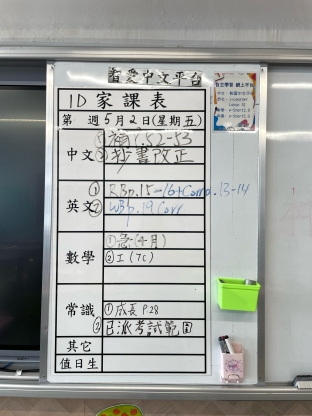 看愛中文平台
1D 家課表
第 週 5月2日(星期五)
中文
①補P.52-53
②抄書改正
英文
① RBp.15-16+Corr p.13-14
② WBp.19 Corr
數學
①急(4月)
②工(7C)
常識
①成長 P.28
②已派考試範圍
其它
值日生
自主學習 網上平台